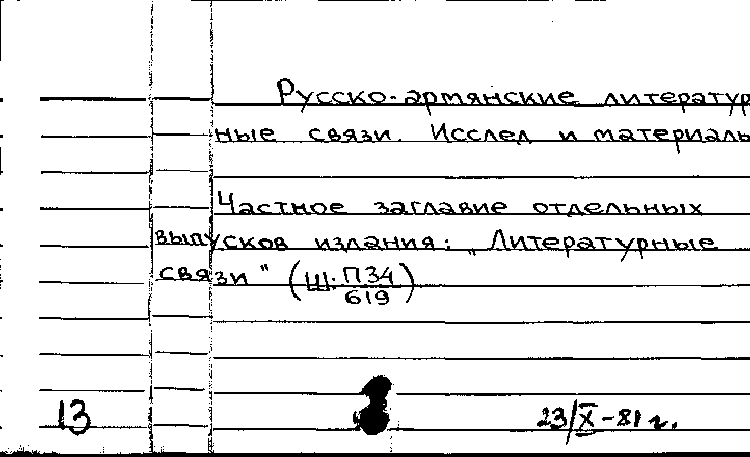 Русско-армянские литератур
ные связи. Исслед и материалы
Частное заглавие отдельных
выпусков издания: „Литературные
связи" (Ш: П34/619)
13
23/X-81 г.